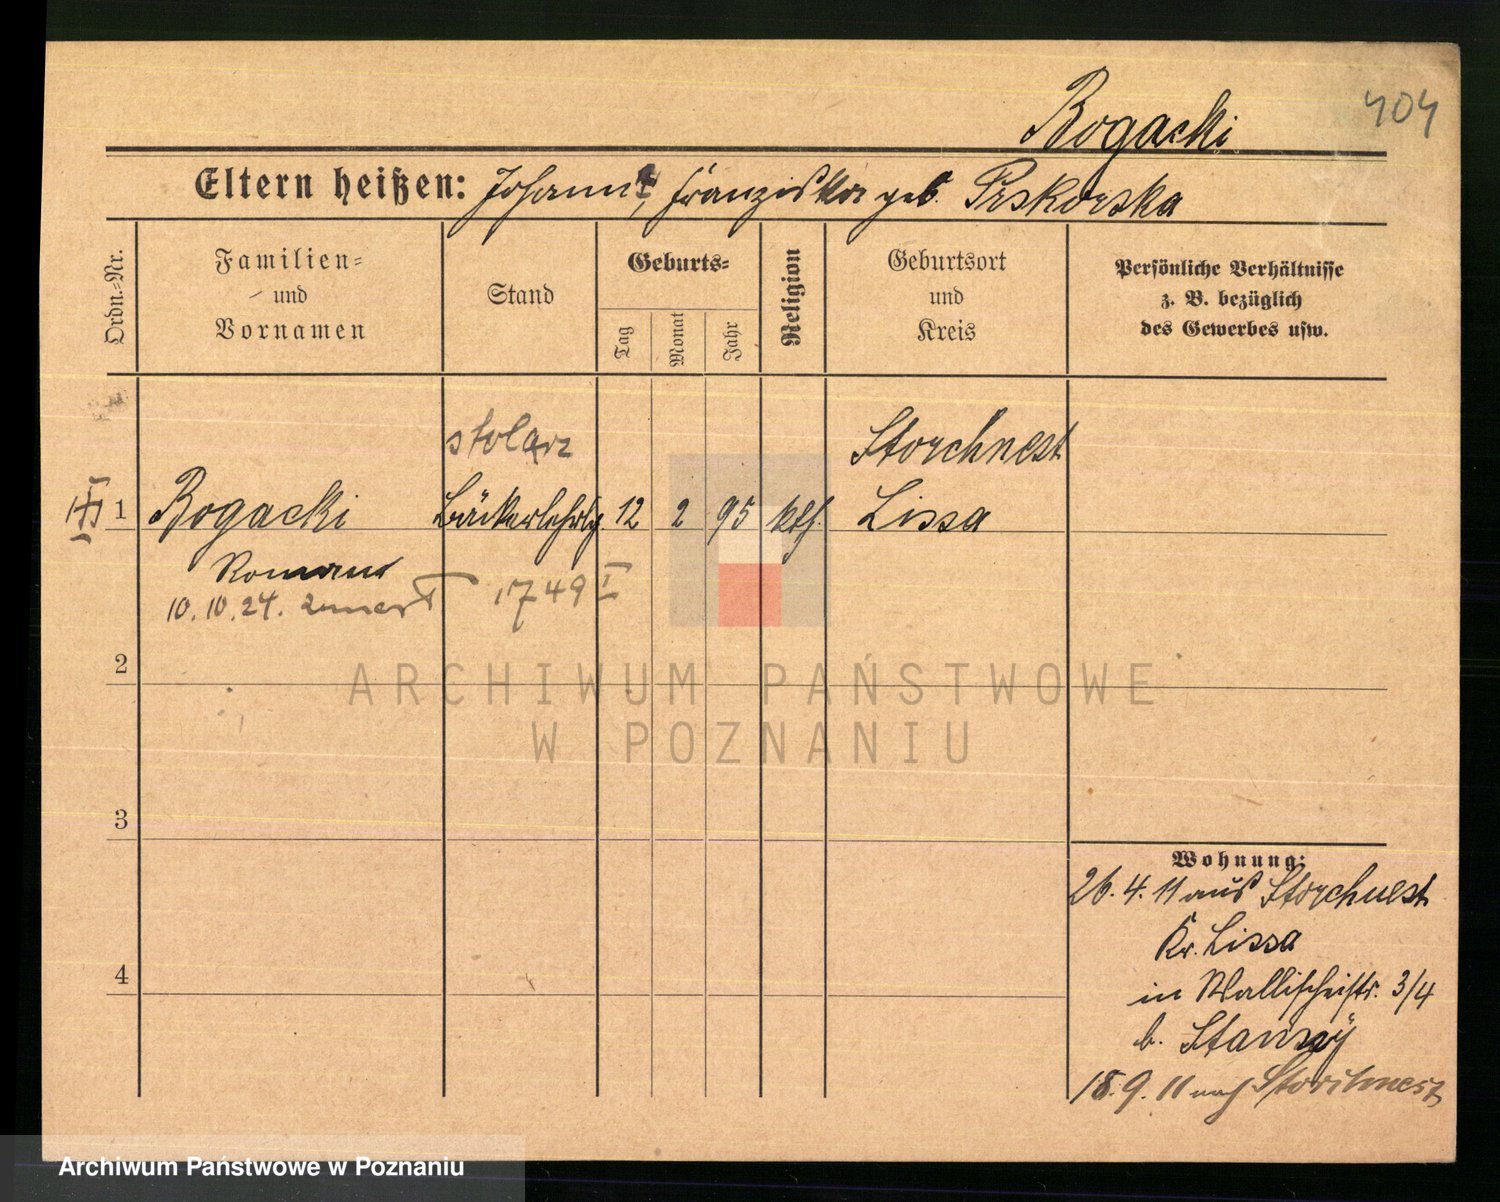 Bogacki
404
Eltern heißen: Johann †, Franziska geb. Piskorska
Ordn.-Nr.
Familien-
und
Vornamen
Stand
Geburts-
Tag
Monat
Jahr
Religion
Geburtsort
und
Kreis
Persönliche Verhältnisse
z. B. bezüglich
des Gewerbes usw.
stolarz
Storchnest
1 Bogacki Bäckerlehrlg. 12 2 95 kth. Lissa
Roman
10.10.24. zmarł 1749 I
2
ARCHIWUM PAŃSTWOWE
W POZNANIU
3
Wohnung:
26.4.11 aus Storchnest
Kr. Lissa
4
in Wallischeistr. 3/4
b.
18.9.11 nach Storchnest
Archiwum Państwowe w Poznaniu